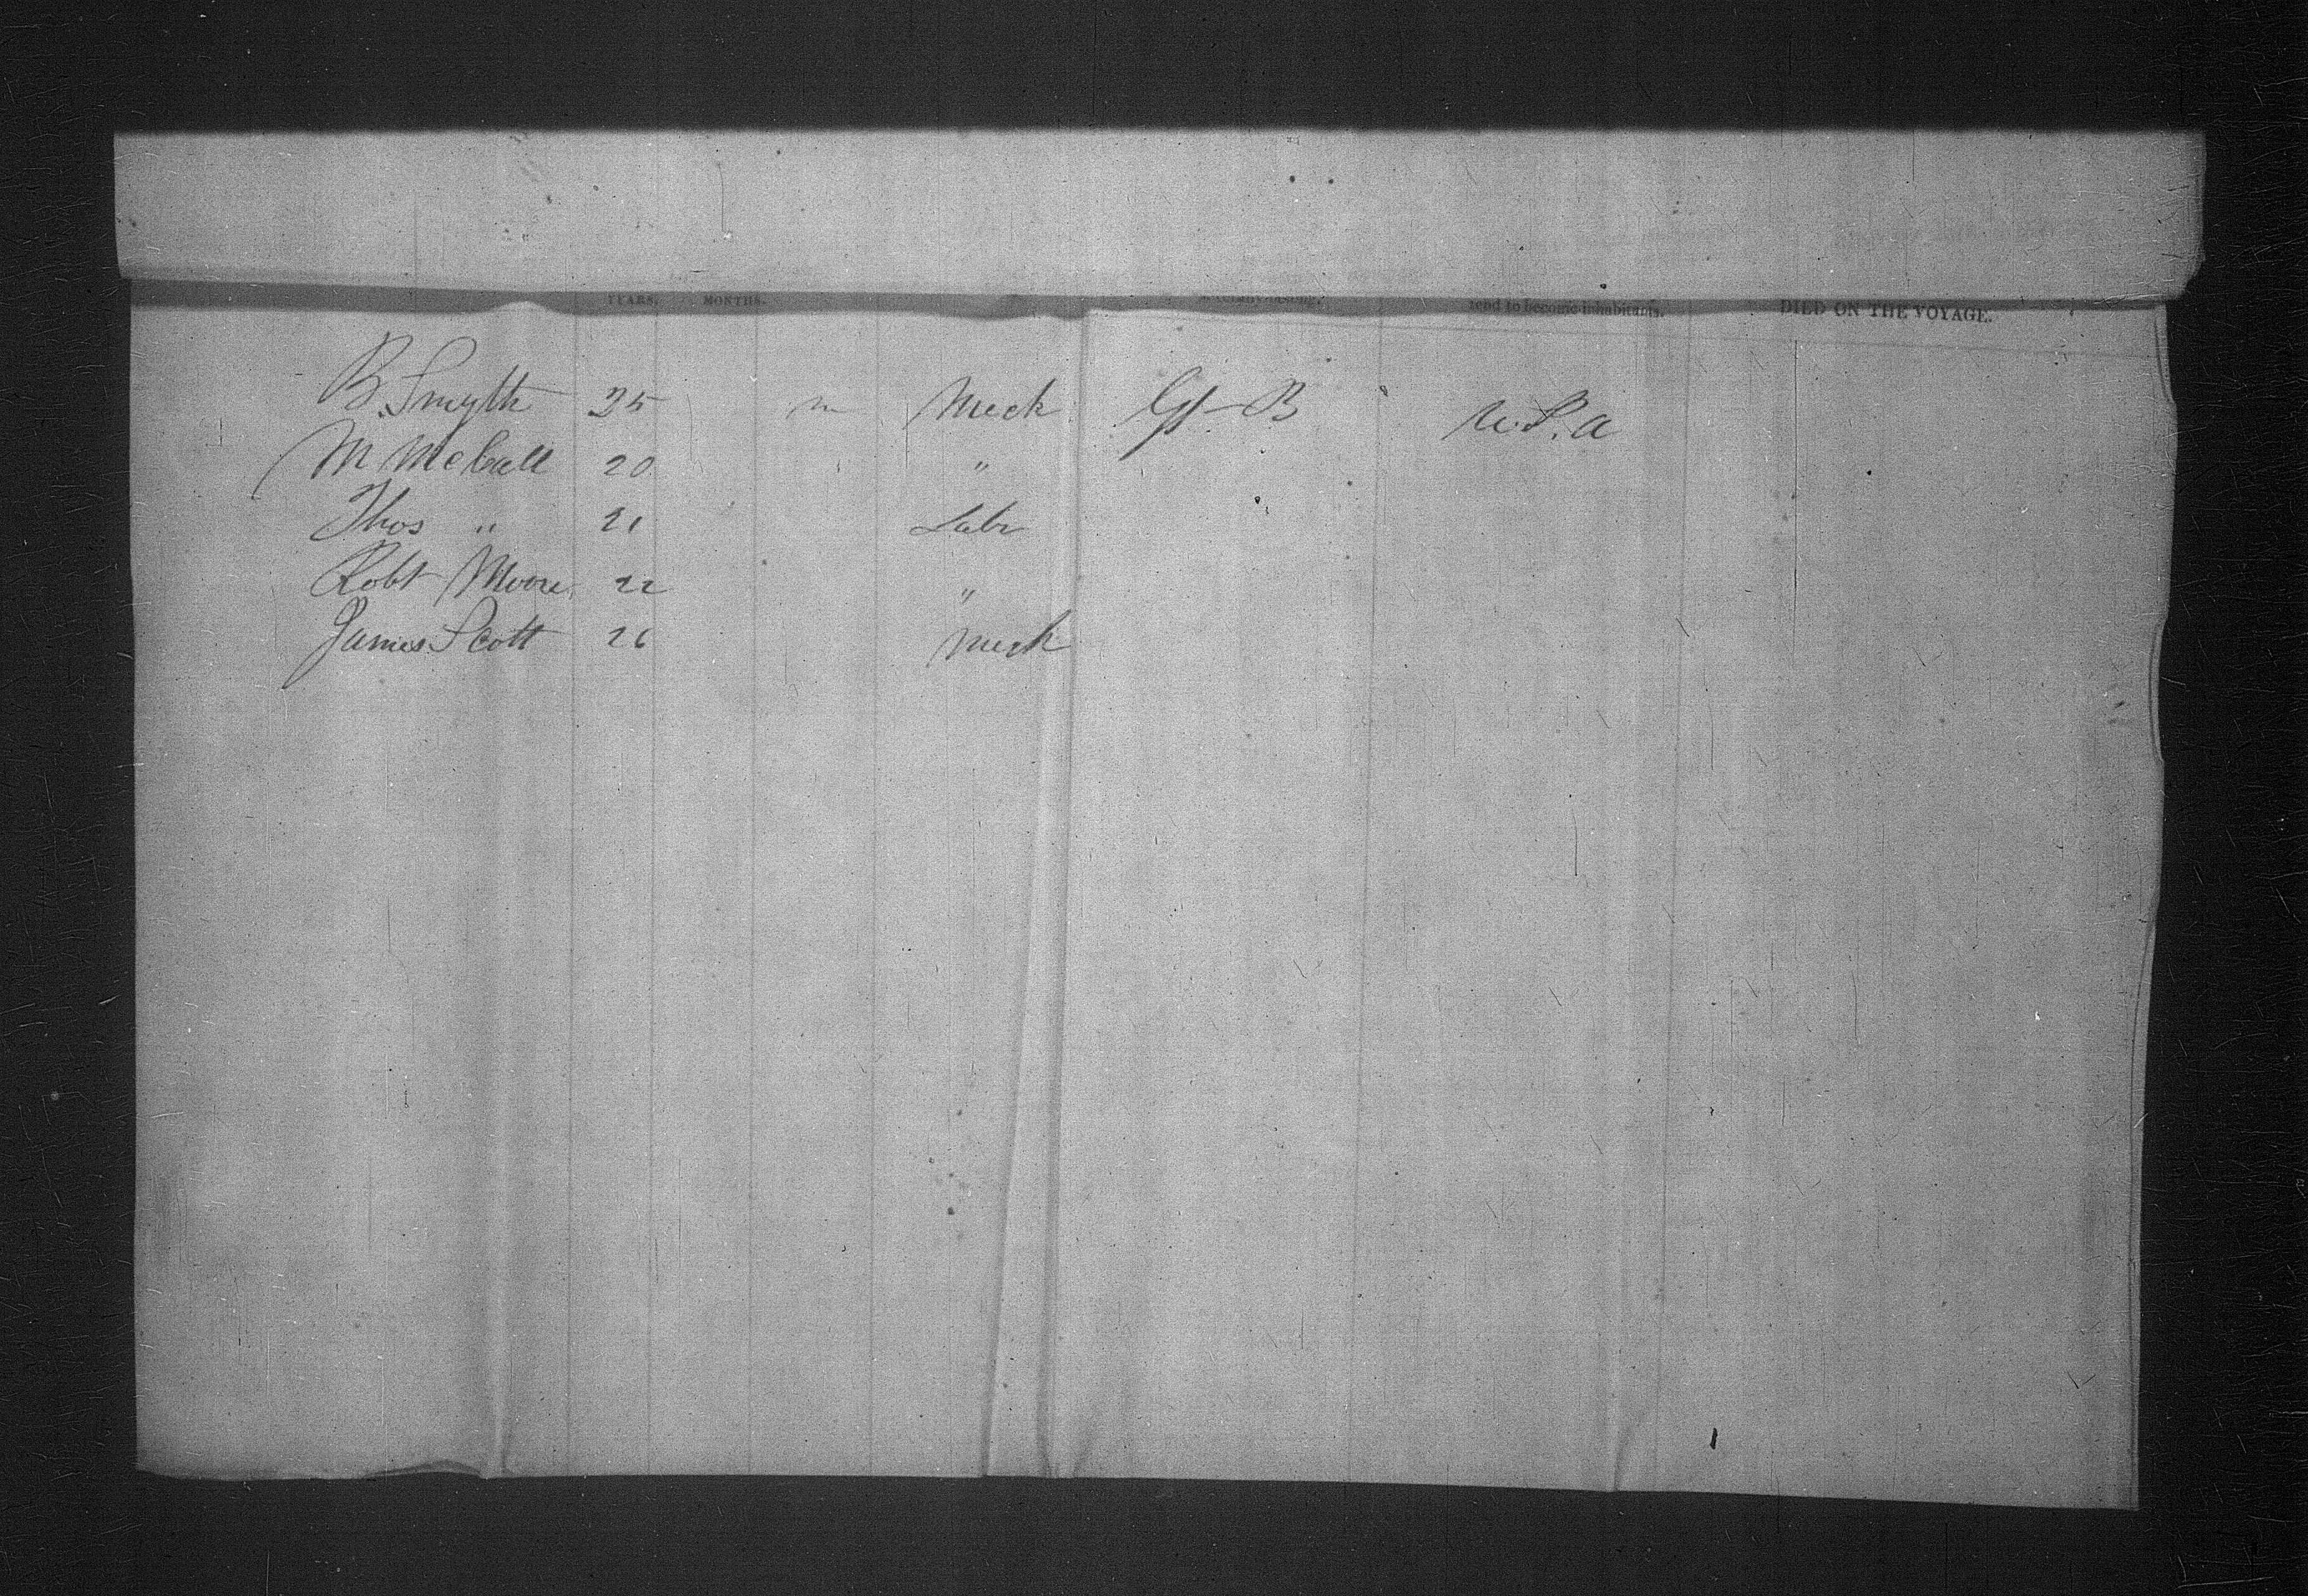 YEARS. MONTHS. tend to become inhabitants. DIED ON THE VOYAGE.
B. Smyth 25 m Mech Gt B U.S.A
M McCall 20 "
Thos " 21 Labr
Robt Moore 22 "
James Scott 26 Mech